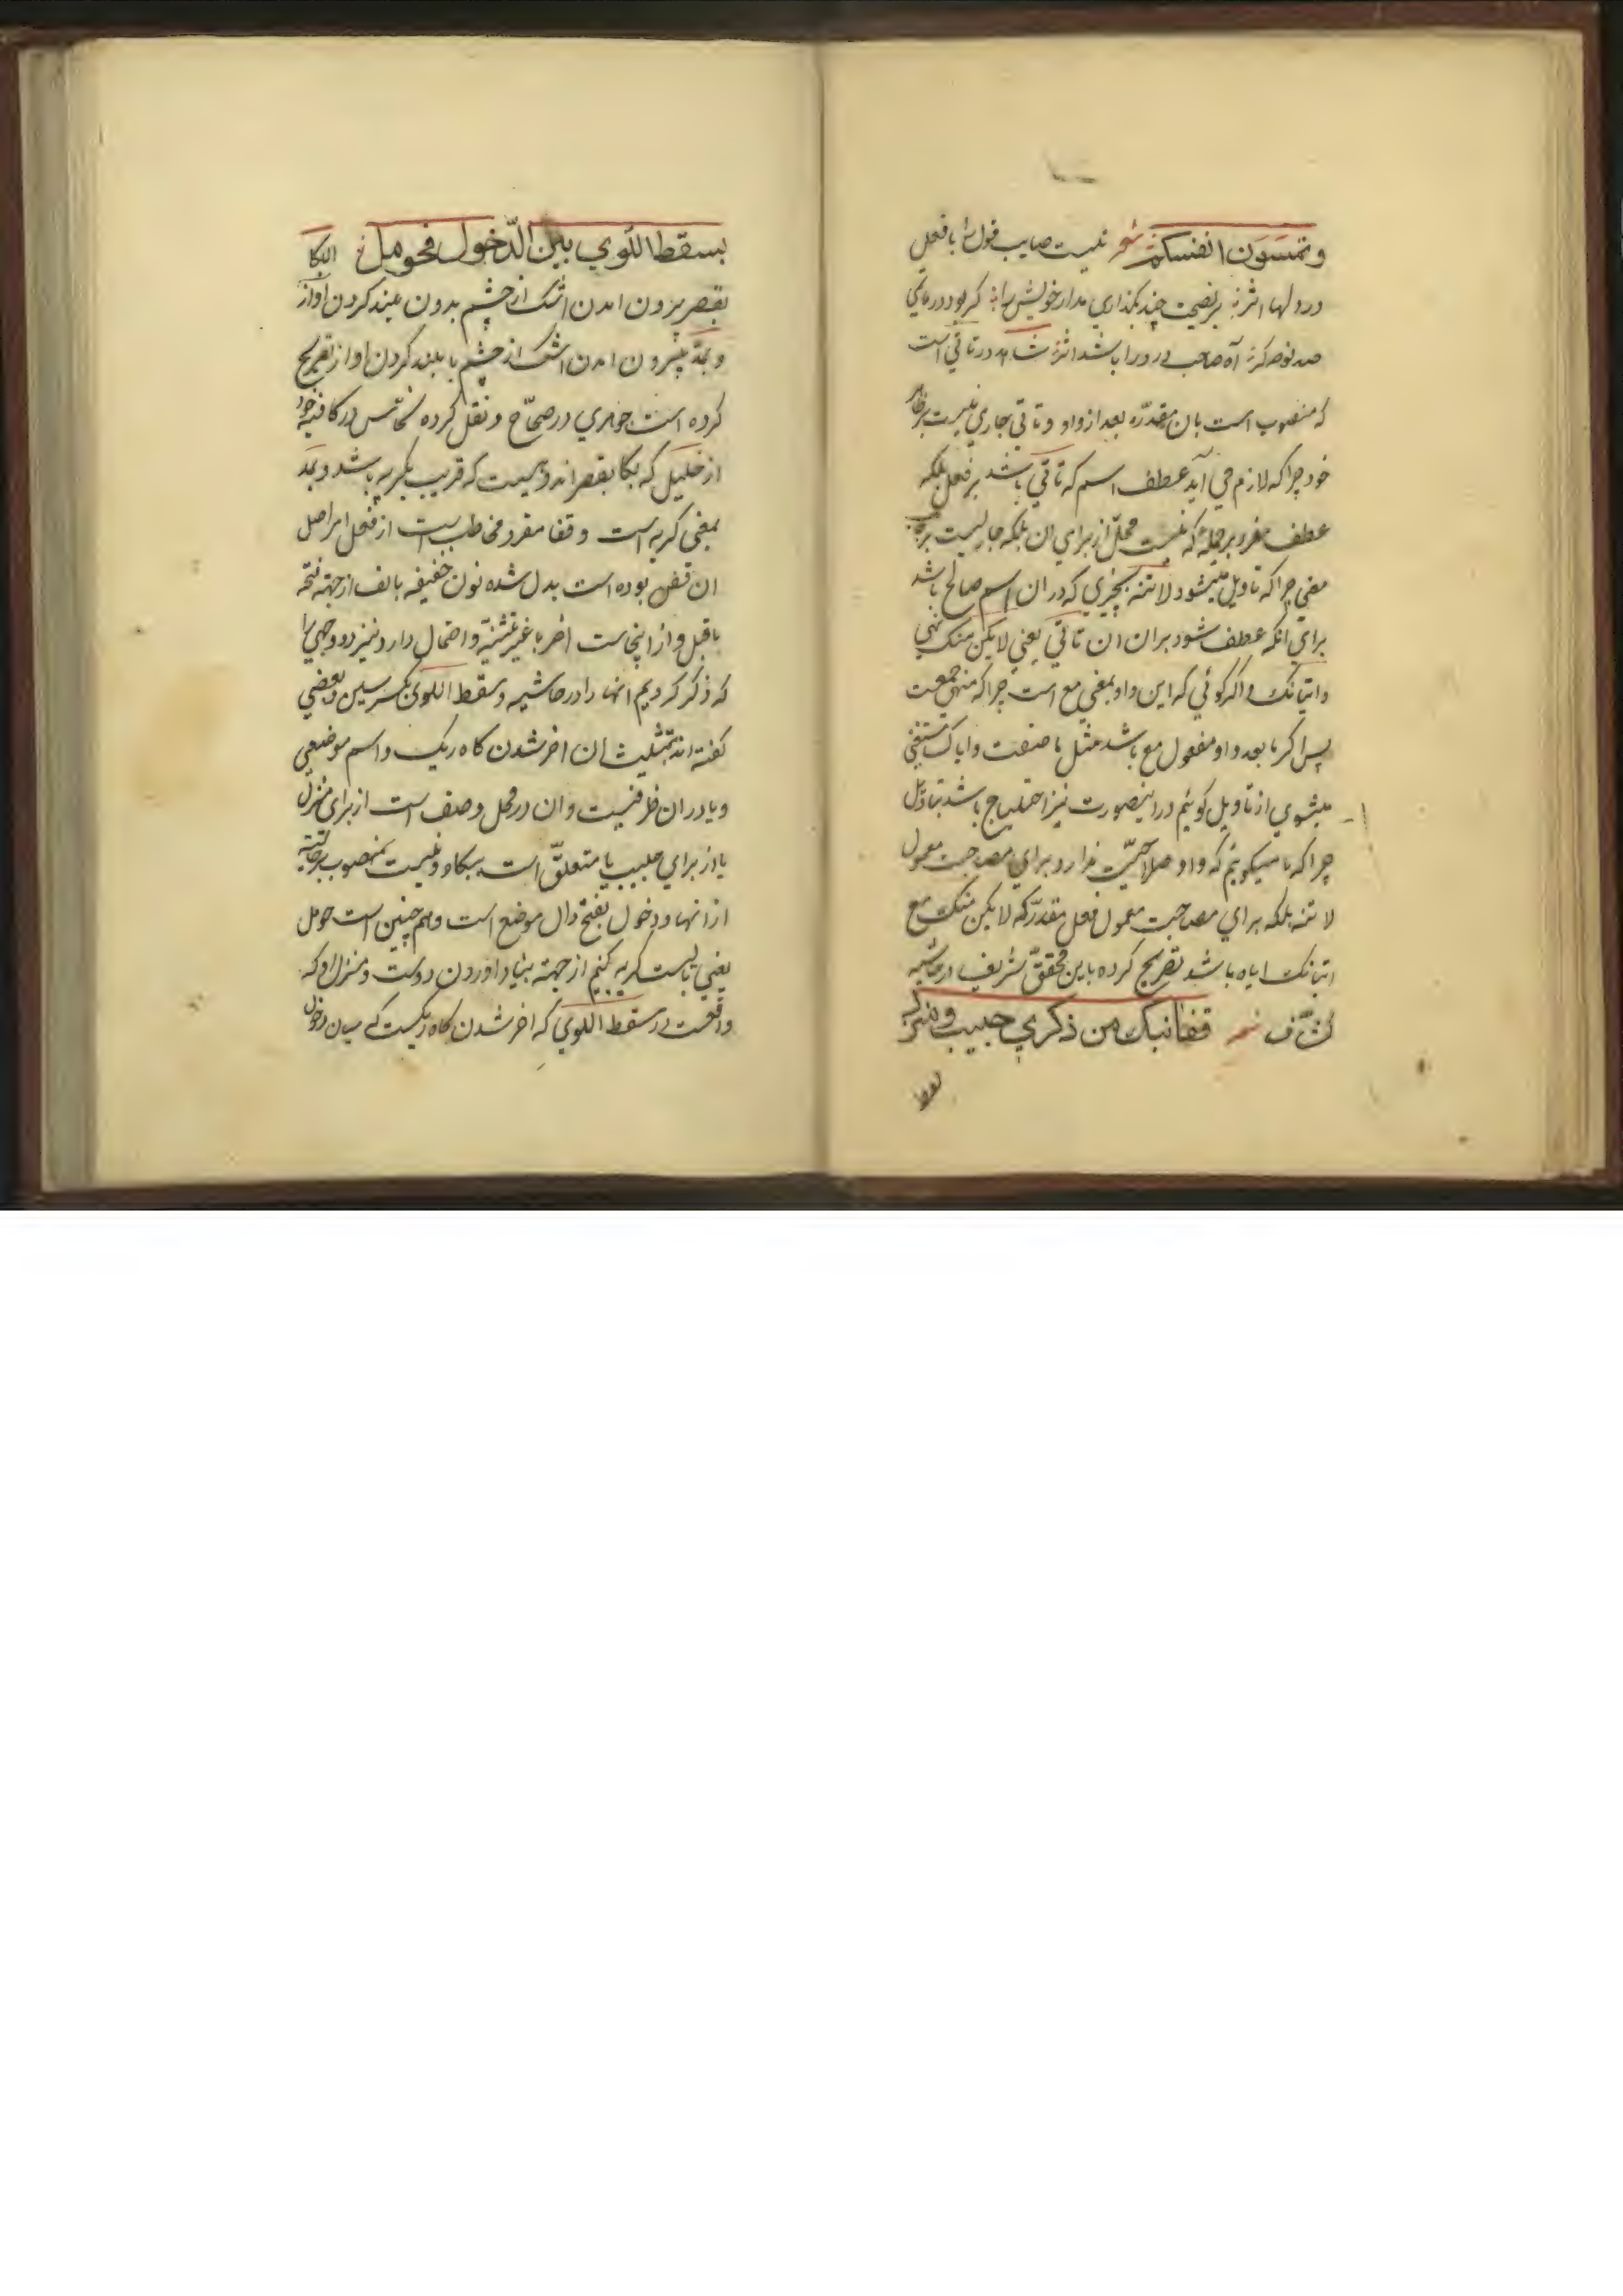 وتنسون انفسکم شعر نیست صاحب قول را با فعل
در دلها اثر بر نصیحت چند بگذاری مدار خویش را گر بود در ماتمی
صد نوحه گر آه صاحب درد را باشد اثر شاهد در تأتی است
که منصوب است بان مقدّره بعد از واو و تأتی جاری نیست بر ظاهر
خود چرا که لازم می آید عطف اسم که تأتی باشد بر فعل بلکه
عطف مفرد بر جمله که نیست محلّ از برای ان بلکه جاریست بر جانب
معنی چرا که تاویل میشود لا تنه بچیزی که در ان اسم صالح باشد
برای انکه عطف شود بران ان تأتی یعنی لایکن منک نهی
واتیانک و اگر گوئی که این واو بمعنی مع است چرا که منهی جمعیت
پس اگر مابعد واو مفعول مع باشد مثل ما صنعت وایاک مستغنی
میشوی از تاویل گوئیم در اینصورت نیز احتیاج باشد بتاویل
چرا که ما میگوئیم که واو صلاحیّت ندارد برای مصاحبت معمول
لا تنه بلکه برای مصاحبت معمول فعل مقدّر که لایکن منک مع
اتیانک ایاه باشد تصریح کرده باین محقّق شریف در حاشیه
کشّاف شعر قفا نبک من ذکری حبیب ومنزل
بسقط
بسقط اللّوی بین الدّخول فحومل البکا
بقصر بیرون امدن اشک از چشم بدون بلند کردن اواز
و بمدّ بیرون امدن اشک از چشم با بلند کردن اواز تصریح
کرده است جوهری در صحّاح و نقل کرده نحّاس در کافیه خود
از خلیل که بکا بقصر اندوهیست که قریب بگریه باشد و بمد
بمعنی گریه است و قفا مفرد مخاطب است از فعل امر اصل
ان قفن بوده است بدل شده نون خفیفه بالف از جهة فتحه
ماقبل و از اینجاست اخر با غیر تثنیّه و احتمال دارد نیز دو وجهی را
که ذکر کردیم انها را در حاشیه و سقط اللوی بکسر سین و بعضی
گفته اند بتثلیث ان اخر شدن کاه ریک و اسم موضعی
و با در ان ظرفیست و ان در محل وصف است از برای منزل
یا از برای حبیب یا متعلّق است ببکاء و نیست منصوب بر حالیّة
از انها و دخول بفتح دال موضع است و هم چنین است حومل
یعنی بایست گریه کنیم از جهة بیاد اوردن دوست و منزل او که
واقعست در سقط اللوی که اخر شدن کاه ریکست که میان دخول